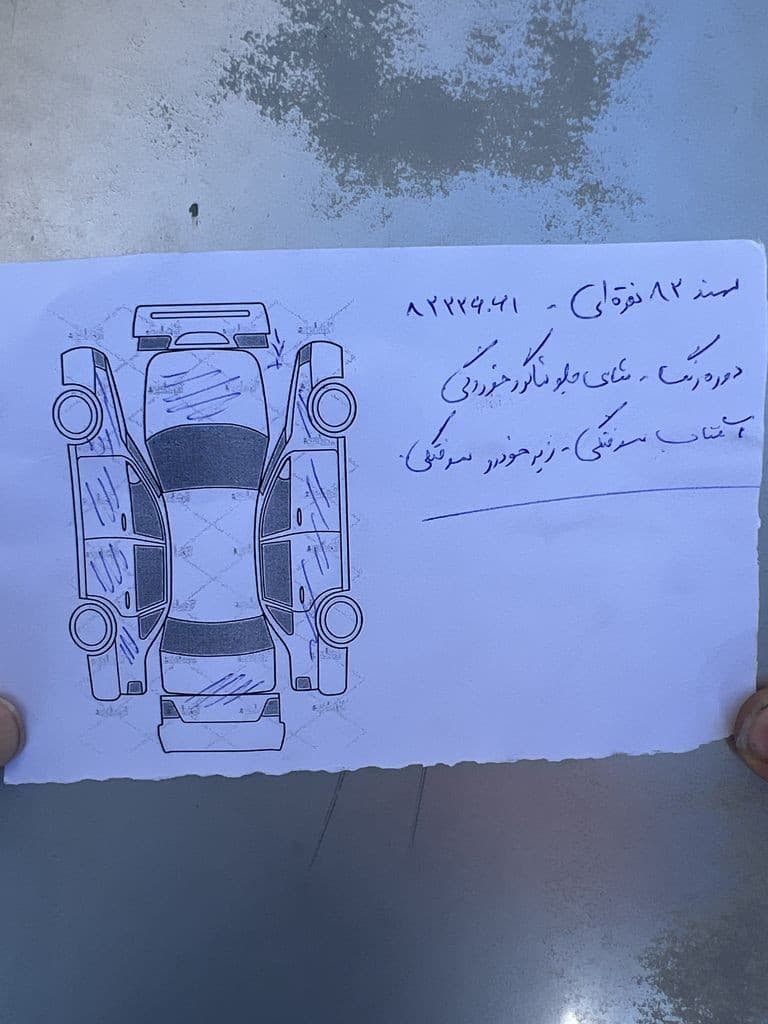 سمند ۸۲ نقره ای - ۸۲۲۲۶۰۶۱
دوره رنگ - شاسی جلو شاگرد خوردگی
آفتاب سوختگی - زیر خودرو سوختگی